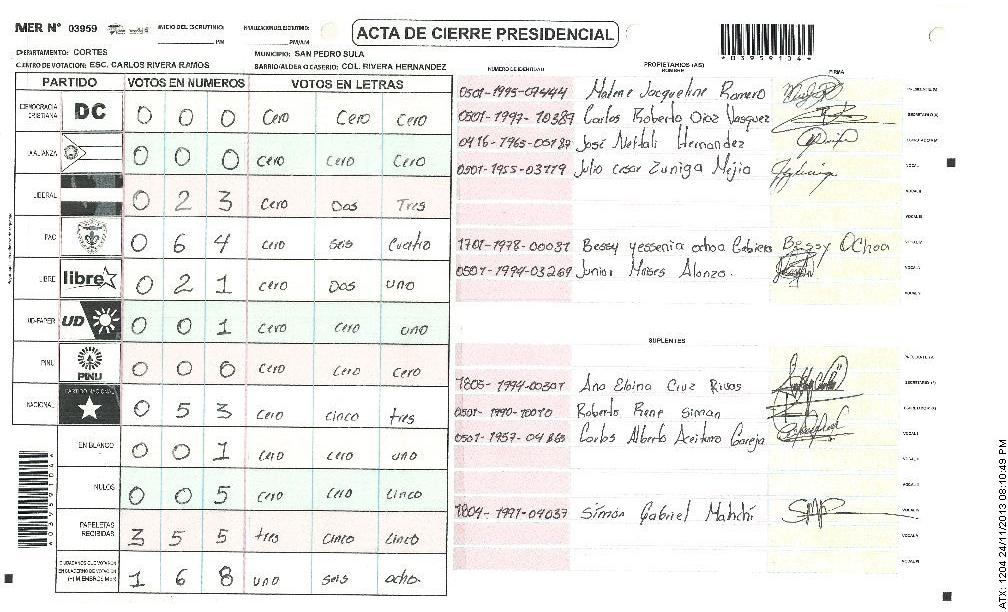 MER N° 03959
INICIO DEL ESCRUTINIO: PM
FINALIZACION DEL ESCRUTINIO: PM/AM
ACTA DE CIERRE PRESIDENCIAL
*03959104*
DEPARTAMENTO: CORTES
MUNICIPIO: SAN PEDRO SULA
CENTRO DE VOTACION: ESC. CARLOS RIVERA RAMOS
BARRIO/ALDEA O CASERIO: COL. RIVERA HERNANDEZ
PARTIDO VOTOS EN NUMEROS VOTOS EN LETRAS
DEMOCRACIA CRISTIANA DC 0 0 0 Cero Cero Cero
ALIANZA 0 0 0 Cero Cero Cero
LIBERAL 0 2 3 Cero Dos Tres
PAC 0 6 4 Cero Seis Cuatro
LIBRE libre 0 2 1 Cero Dos uno
UD-FAPER UD 0 0 1 Cero Cero uno
PINU PINU 0 0 0 Cero Cero Cero
NACIONAL PARTIDO NACIONAL 0 5 3 Cero Cinco tres
EN BLANCO 0 0 1 Cero Cero uno
NULOS 0 0 5 Cero Cero Cinco
PAPELETAS RECIBIDAS 3 5 5 tres Cinco Cinco
CIUDADANOS QUE VOTARON EN CUADERNO DE VOTACION (+) MIEMBROS MER 1 6 8 uno seis ocho.
*03959104*
NUMERO DE IDENTIDAD PROPIETARIOS (AS) NOMBRE FIRMA
0501-1995-07444 Jacqueline Romero
0501-1997-10387 Carlos Roberto Diaz Vasquez
0416-1965-00187 José Neftali Hernandez
0501-1955-03779 Julio Cesar Zuniga Mejia
1701-1978-00031 Bessy yessenia ochoa Bessy Ochoa
0501-1994-03269 Junior Moises Alonzo.
SUPLENTES
1805-1994-00307 Ana Cruz Rivas
Roberto Rene Siman
Carlos Alberto Aceituno
1804-1991-04037 Simón Gabriel
ATX: 1204 24/11/2013 08:10:49 PM